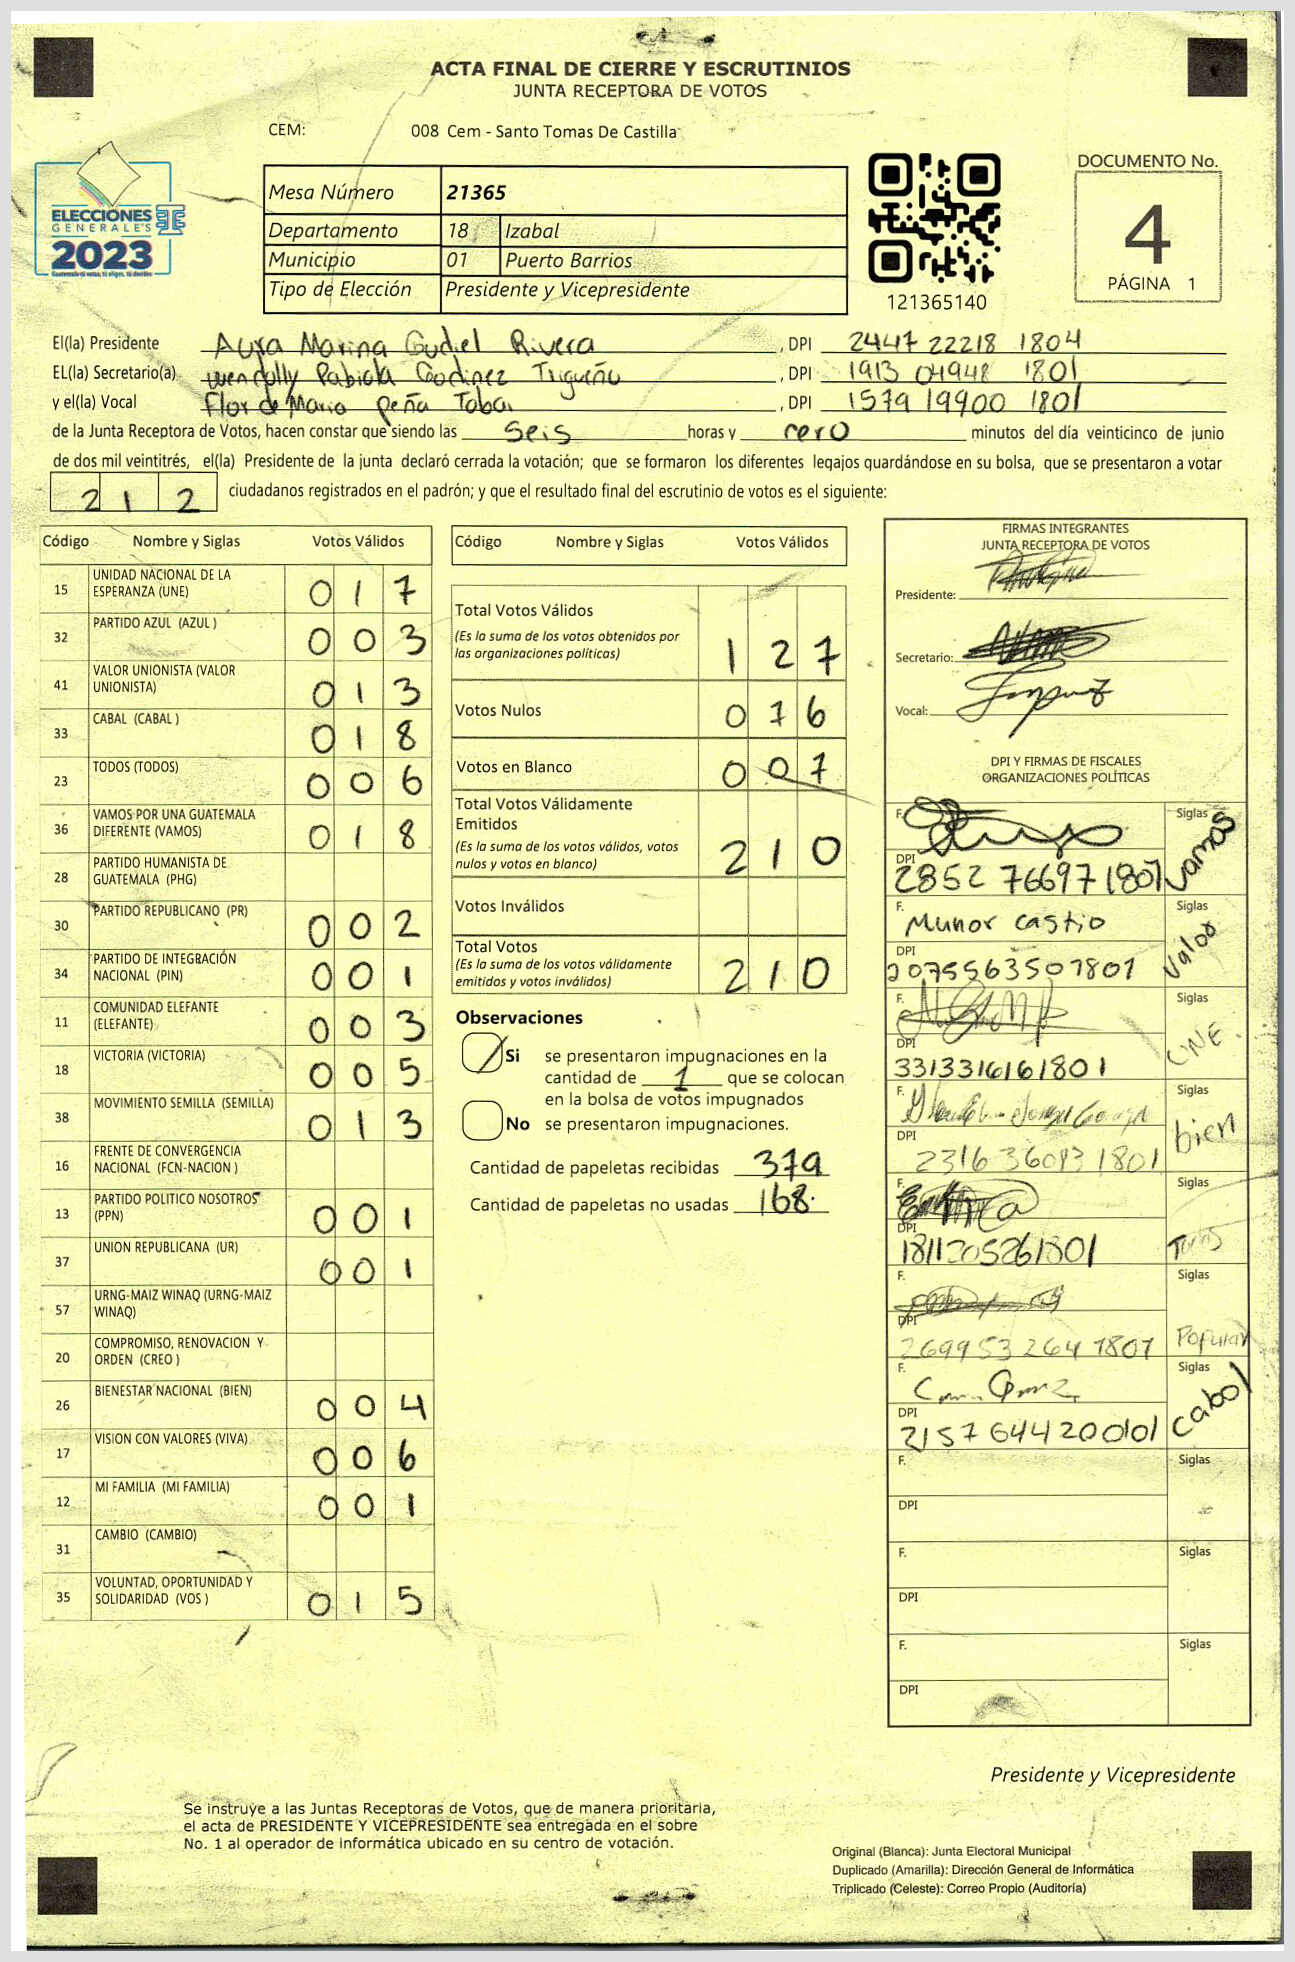 ACTA FINAL DE CIERRE Y ESCRUTINIOS
JUNTA RECEPTORA DE VOTOS
CEM: 008 Cem - Santo Tomas De Castilla
ELECCIONES
GENERALES
2023
Mesa Número 21365
Departamento 18 Izabal
Municipio 01 Puerto Barrios
Tipo de Elección Presidente y Vicepresidente
121365140
DOCUMENTO No.
4
PÁGINA 1
El(la) Presidente Aura Marina Gudiel Rivera , DPI 2447 22218 1804
EL(la) Secretario(a) Godinez Trigueño , DPI 1913 04948 1801
y el(la) Vocal Flor de Maria peña Tobar , DPI 1579 19900 1801
de la Junta Receptora de Votos, hacen constar que siendo las seis horas y cero minutos del día veinticinco de junio
de dos mil veintitrés, el(la) Presidente de la junta declaró cerrada la votación; que se formaron los diferentes legajos guardándose en su bolsa, que se presentaron a votar
212 ciudadanos registrados en el padrón; y que el resultado final del escrutinio de votos es el siguiente:
Código Nombre y Siglas Votos Válidos
15 UNIDAD NACIONAL DE LA ESPERANZA (UNE) 017
32 PARTIDO AZUL (AZUL ) 003
41 VALOR UNIONISTA (VALOR UNIONISTA) 013
33 CABAL (CABAL ) 018
23 TODOS (TODOS) 006
36 VAMOS POR UNA GUATEMALA DIFERENTE (VAMOS) 018
28 PARTIDO HUMANISTA DE GUATEMALA (PHG)
30 PARTIDO REPUBLICANO (PR) 002
34 PARTIDO DE INTEGRACIÓN NACIONAL (PIN) 001
11 COMUNIDAD ELEFANTE (ELEFANTE) 003
18 VICTORIA (VICTORIA) 005
38 MOVIMIENTO SEMILLA (SEMILLA) 013
16 FRENTE DE CONVERGENCIA NACIONAL (FCN-NACION )
13 PARTIDO POLITICO NOSOTROS (PPN) 001
37 UNION REPUBLICANA (UR) 001
57 URNG-MAIZ WINAQ (URNG-MAIZ WINAQ)
20 COMPROMISO, RENOVACION Y ORDEN (CREO )
26 BIENESTAR NACIONAL (BIEN) 004
17 VISION CON VALORES (VIVA) 006
12 MI FAMILIA (MI FAMILIA) 001
31 CAMBIO (CAMBIO)
35 VOLUNTAD, OPORTUNIDAD Y SOLIDARIDAD (VOS ) 015
Código Nombre y Siglas Votos Válidos
Total Votos Válidos 127
(Es la suma de los votos obtenidos por
las organizaciones políticas)
Votos Nulos 076
Votos en Blanco 007
Total Votos Válidamente
Emitidos 210
(Es la suma de los votos válidos, votos
nulos y votos en blanco)
Votos Inválidos
Total Votos 210
(Es la suma de los votos válidamente
emitidos y votos inválidos)
Observaciones
Si se presentaron impugnaciones en la
cantidad de 1 que se colocan
en la bolsa de votos impugnados
No se presentaron impugnaciones.
Cantidad de papeletas recibidas 379
Cantidad de papeletas no usadas 168
FIRMAS INTEGRANTES
JUNTA RECEPTORA DE VOTOS
Presidente:
Secretario:
Vocal:
DPI Y FIRMAS DE FISCALES
ORGANIZACIONES POLÍTICAS
F. Siglas vamos
DPI 2852 76697 1801
F. Munor castio Siglas Valor
DPI 2075563501801
F. Siglas UNE
DPI 3313316161801
F. Siglas bien
DPI 2316 36093 1801
F. Siglas Todos
DPI 1811205261801
F. Siglas Popular
DPI 2699532641801
F. Siglas cabal
DPI 2157644200101
F. Siglas
DPI
F. Siglas
DPI
F. Siglas
DPI
Presidente y Vicepresidente
Se instruye a las Juntas Receptoras de Votos, que de manera prioritaria,
el acta de PRESIDENTE Y VICEPRESIDENTE sea entregada en el sobre
No. 1 al operador de informática ubicado en su centro de votación.
Original (Blanca): Junta Electoral Municipal
Duplicado (Amarilla): Dirección General de Informática
Triplicado (Celeste): Correo Propio (Auditoría)